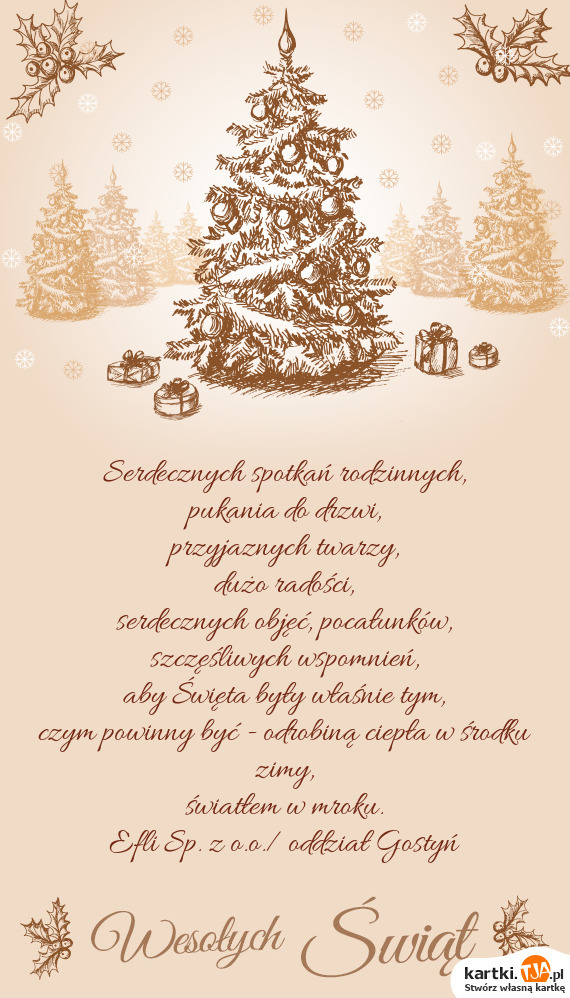 Serdecznych spotkań rodzinnych,
pukania do drzwi,
przyjaznych twarzy,
dużo radości,
serdecznych objęć, pocałunków,
szczęśliwych wspomnień,
aby Święta były właśnie tym,
czym powinny być - odrobiną ciepła w środku
zimy,
światłem w mroku.
Efli Sp. z o.o./ oddział Gostyń
Wesołych Świąt
kartki.TJA.pl
Stwórz własną kartkę